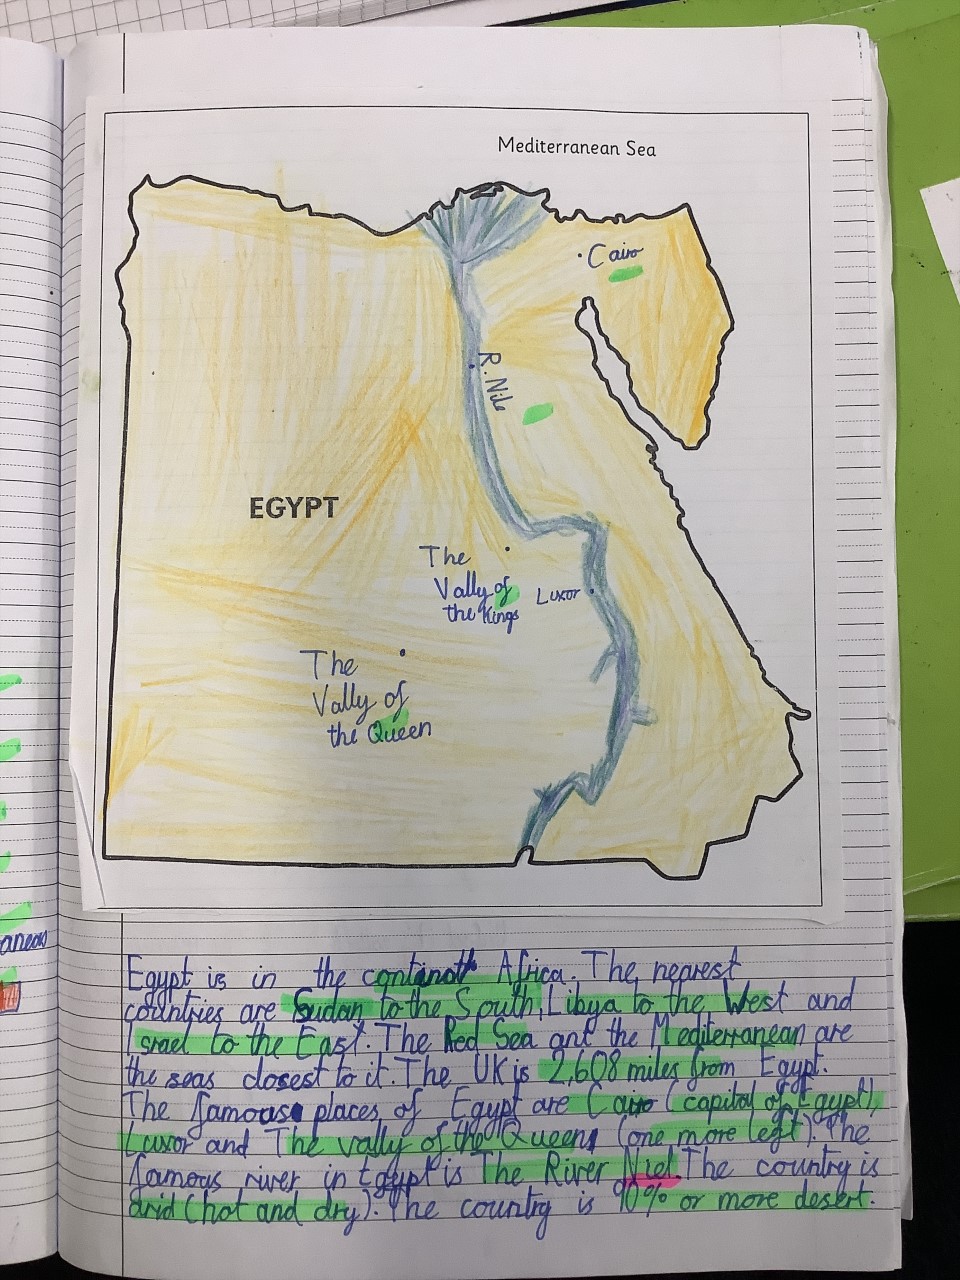 Mediterranean Sea
Cairo
R. Nile
EGYPT
The
Vally of
the Kings
Luxor
The
Vally of
the Queen
aneon
Egypt is in the continoth Africa. The nearest
countries are Sudan to the South, Libya to the West and
Israel to the East. The Red Sea ant the Mediterranean are
the seas closest to it. The UK is 2,608 miles from Egypt.
The famouse places of Egypt are Cairo (capital of Egypt),
Luxor and The vally of the Queens (one more left). The
famous river in Egypt is The River Niel. The country is
arid (hot and dry). The country is 90% or more desert.